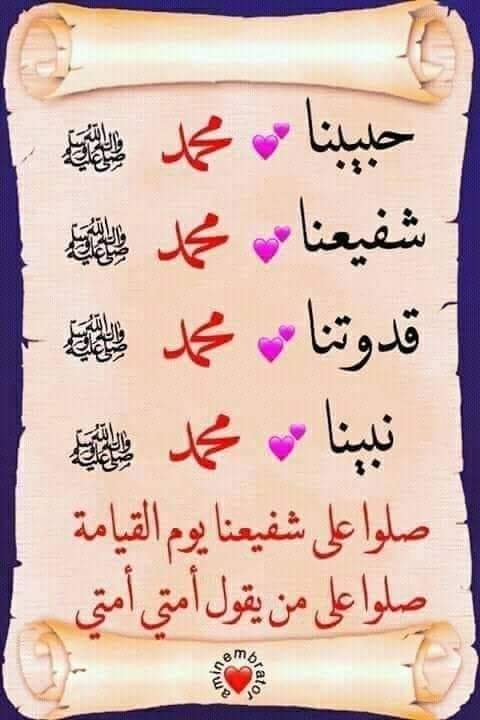 حبيبنا 💕 محمد ﷺ
شفيعنا 💕 محمد ﷺ
قدوتنا 💕 محمد ﷺ
نبينا 💕 محمد ﷺ
صلوا على شفيعنا يوم القيامة
صلوا على من يقول أمتي أمتي
aminembrator